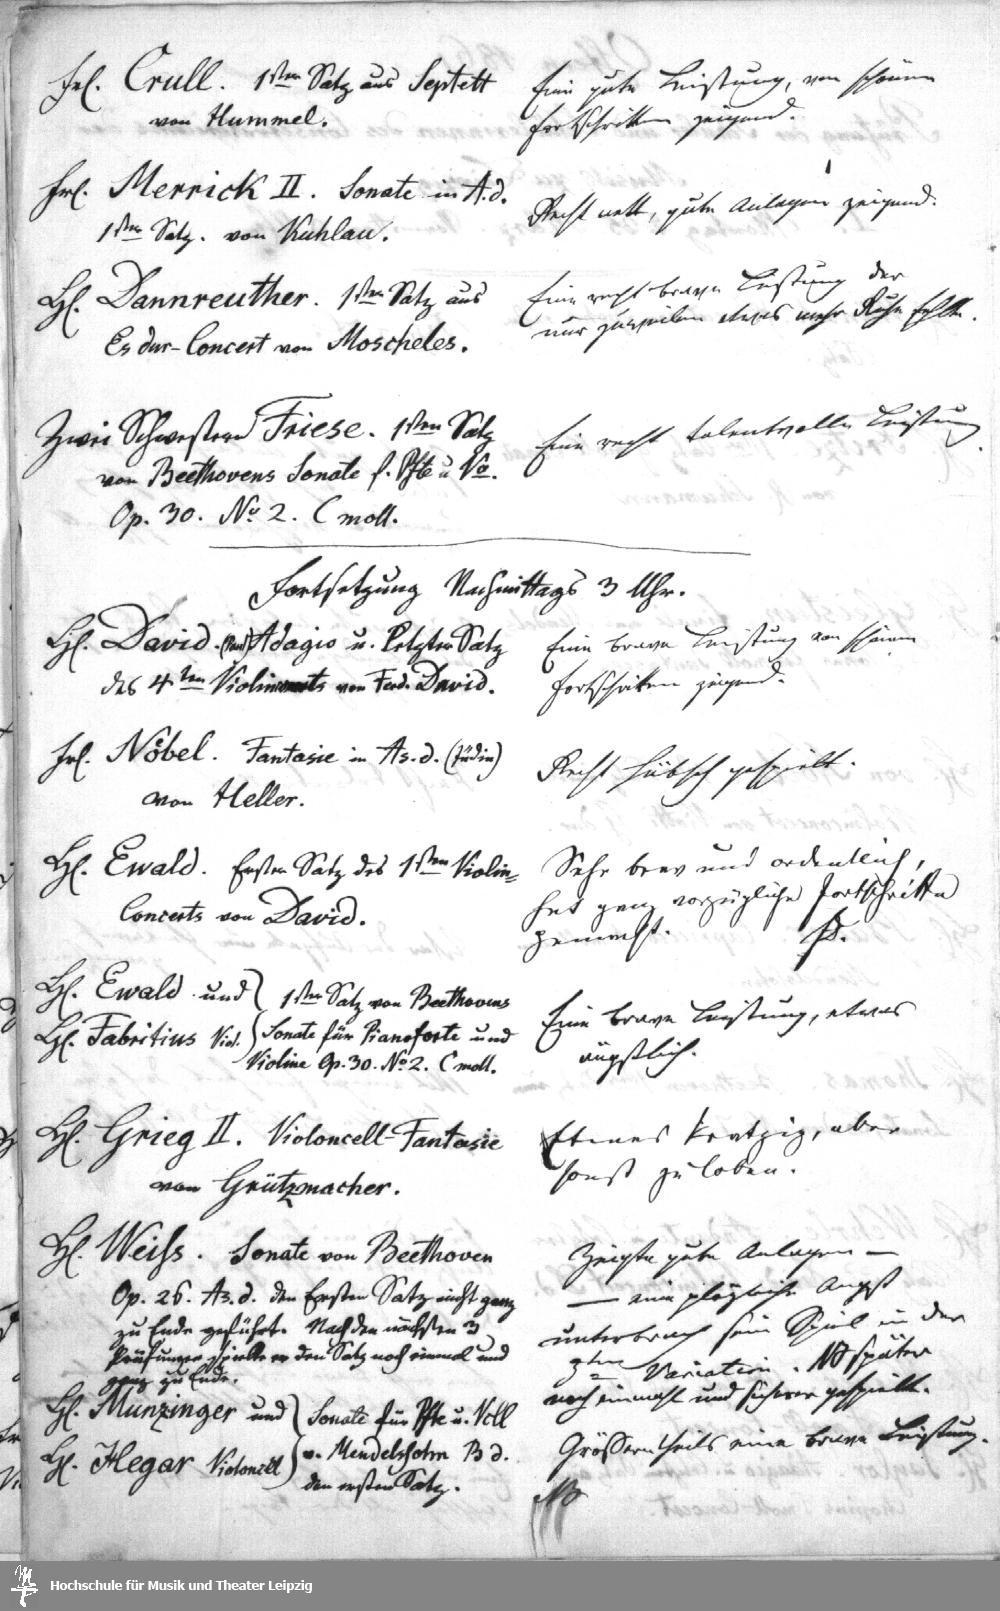 Frl. Crull. 1sten Satz aus Septett
von Hummel.
Eine gute Leistung, von schönen
Fortschritten zeigend.
Frl. Merrick II. Sonate in A.d.
1sten Satz. von Kuhlau.
Recht nett, gute Anlagen zeigend.
H. Dannreuther. 1sten Satz aus
Es dur-Concert von Moscheles.
Eine recht brave Leistung der
nur zuweilen etwas mehr Ruhe fehlte.
Zwei Schwestern Friese. 1sten Satz
von Beethovens Sonate f. Pfte u Vo.
Op. 30. No 2. C moll.
Eine recht talentvolle Leistung.
Fortsetzung Nachmittags 3 Uhr.
H. David. Adagio u. Letzter Satz
des 4ten von Ferd. David.
Eine brave Leistung von schönen
Fortschritten zeigend.
Frl. Nöbel. Fantasie in As. d. (Jüdin)
von Heller.
Recht hübsch gespielt.
H. Ewald. Ersten Satz des 1sten Violin-
Concerts von David.
Sehr brav und ordentlich,
hat ganz vorzügliche Fortschritte
gemacht.
H. Ewald und
H. Fabritius Viol.
1sten Satz von Beethovens
Sonate für Pianoforte und
Violine Op. 30. No 2. C moll.
Eine brave Leistung, etwas
ängstlich.
H. Grieg II. Violoncell-Fantasie
von Grützmacher.
Etwas kratzig, aber
sonst zu loben.
H. Weiss. Sonate von Beethoven
Op. 26. As. d. den Ersten Satz nicht ganz
zu Ende geführt. Nach den nächsten 3
Prüfungen spielte er den Satz noch einmal und
ganz zu Ende.
Zeigte gute Anlagen —
— eine plötzliche Angst
unterbrach sein Spiel in der
3ten Variation. NB später
noch einmahl und sicherer gespielt.
H. Munzinger und
H. Hegar Violoncell
Sonate für Pfte u. Vcll
v. Mendelsohn B d.
den ersten Satz.
Grösserntheils eine brave Leistung.
NB
Hochschule für Musik und Theater Leipzig